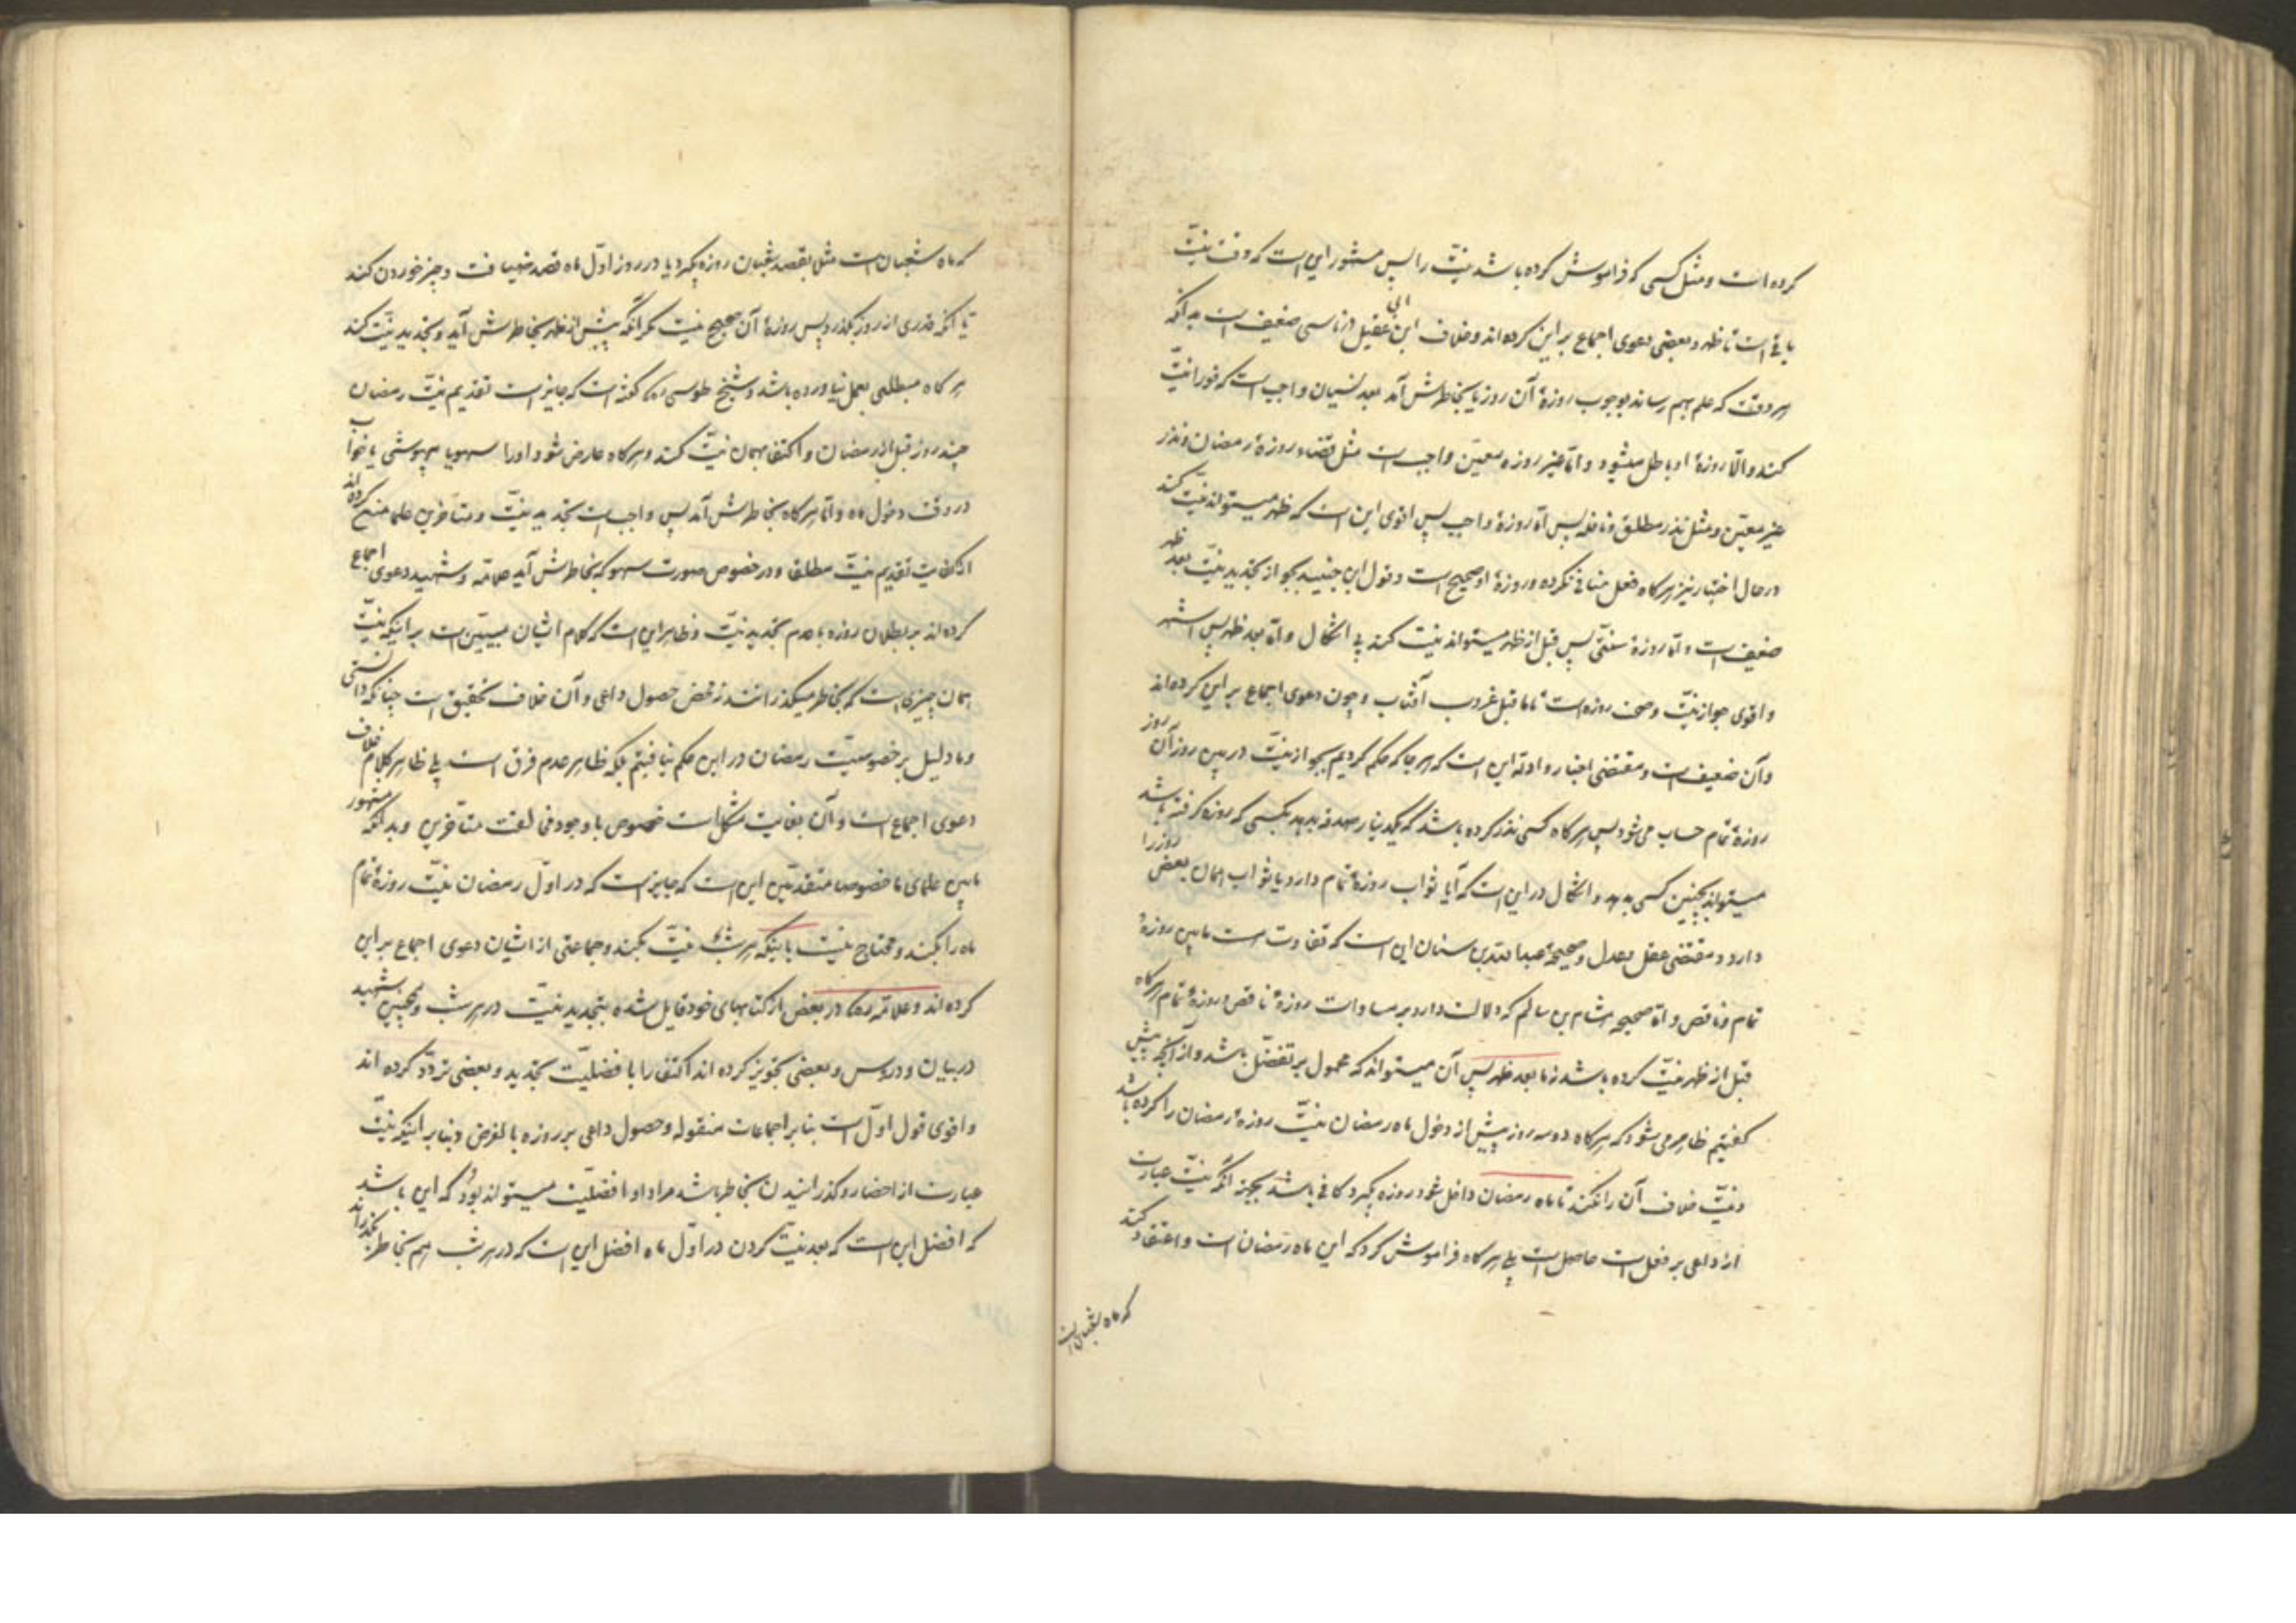 کرده است و مثل کسی که فراموش کرده باشد نیّت را پس مشهور این است که وقت نیّت
باقی است تا ظهر و بعضی دعوی اجماع بر این کرده‌اند و خلاف ابن ابی عقیل در ناسی ضعیف است بدانکه
هر وقت که علم بهم رساند بوجوب روزهٔ آن روز یا بخاطرش آمد بعد نسیان واجب است که فوراً نیّت
کند و الّا روزهٔ او باطل میشود و امّا غیر روزه معیّن واجب است مثل قضاء روزهٔ رمضان و نذر
غیر معیّن و مثل نذر مطلق و نافله پس امّا روزهٔ واجب پس اقوی این است که ظهر میتواند نیّت کند
در حال اختیار نیز هرگاه فعل منافی نکرده و روزهٔ او صحیح است و قول ابن جنید بجواز تجدید نیّت بعد ظهر
ضعیف است و امّا روزهٔ سنّتی پس قبل از ظهر میتواند نیّت کند بی اشکال و امّا بعد ظهر پس اشهر
و اقوی جواز نیّت و صحت روزه است تا ما قبل غروب آفتاب و چون دعوی اجماع بر این کرده‌اند
و آن ضعیف است و مقتضی اخبار و ادلّه این است که هر جا که حکم کردیم بجواز نیّت در بین روز آن روز
روزهٔ تمام حساب می شود پس هرگاه کسی نذر کرده باشد که یکدینار صدقه بدهد بکسی که روزه گرفته باشد
میتواند بچنین کسی بدهد و اشکال در این است که آیا ثواب روزهٔ تمام دارد یا ثواب همان بعض روز را
دارد و مقتضی عقل و عدل و صحیحهٔ عبد اللّه بن سنان این است که تفاوت هست مابین روزهٔ
تمام و ناقص و امّا صحیحه هشام بن سالم که دلالت دارد بر مساوات روزهٔ ناقص و روزهٔ تمام هرگاه
قبل از ظهر نیّت کرده باشد نه ما بعد ظهر پس آن میتواند که محمول بر تفضّل باشد و از آنچه پیش
گفتیم ظاهر می شود که هرگاه دو سه روز پیش از دخول ماه رمضان نیّت روزهٔ رمضان را کرده باشد
و نیّت خلاف آن را نکند تا ماه رمضان داخل شود و روزه بگیرد کافی باشد بجهة آنکه نیّت عبارت
از داعی بر فعل است حاصل است بلی هرگاه فراموش کرد که این ماه رمضان است و اعتقاد کند
که ماه شعبان است
که ماه شعبان است مثل بقصد شعبان روزه بگیرد یا در روز اوّل ماه قصد ضیافت و چیز خوردن کند
تا آنکه قدری از روز بگذرد پس روزهٔ آن صحیح نیست مگر آنکه پیش از ظهر بخاطرش آید و تجدید نیّت کند
هرگاه مبطلی بعمل نیاورده باشد و شیخ طوسی ره گفته است که جایز است تقدیم نیّت رمضان
چند روز قبل از رمضان و اکتفا بهمان نیّت کند و هرگاه عارض شود او را سهو یا بیهوشی یا خواب
در وقت دخول ماه و امّا هرگاه بخاطرش آمد پس واجب است تجدید نیّت و متأخرین علما منع کرده‌اند
از کفایت تقدیم نیّت مطلقا و در خصوص صورت سهو که بخاطرش آید علامّه و شهید دعوی اجماع
کرده‌اند بر بطلان روزه با عدم تجدید نیّت و ظاهر این است که کلام ایشان مبیّن است بر اینکه نیّت
همان چیزی است که بخاطر میگذرانند نه محض حصول داعی و آن خلاف تحقیق است چنانکه دانستی
و ما دلیل بر خصوصیّت رمضان در این حکم نیافتیم بلکه ظاهر عدم فرق است بلی ظاهر کلام خلاف
دعوی اجماع است و آن بغایت مشکل است خصوص با وجود مخالفت متأخرین و بدانکه مشهور
مابین علمای ما خصوصا متقدّمین این است که جایز است که در اوّل رمضان نیّت روزهٔ تمام
ماه را بکند و محتاج نیست باینکه هر شب نیّت بکند و جماعتی از ایشان دعوی اجماع بر این
کرده اند و علامّه ره در بعض از کتابهای خود قایل شده بتجدید نیّت در هر شب و همچنین شهید
در بیان و دروس و بعضی تجویز کرده اند اکتفا را با فضلیّت تجدید و بعضی تردّد کرده اند
و اقوی قول اوّل است بنابر اجماعات منقوله و حصول داعی بر روزه بالفرض و بنابر اینکه نیّت
عبارت از احضار و گذرانیدن بخاطر باشد مراد او افضلیّت میتواند بود که این باشد
که افضل این است که بعد نیّت کردن در اوّل ماه افضل این است که در هر شب هم بخاطر بگذراند